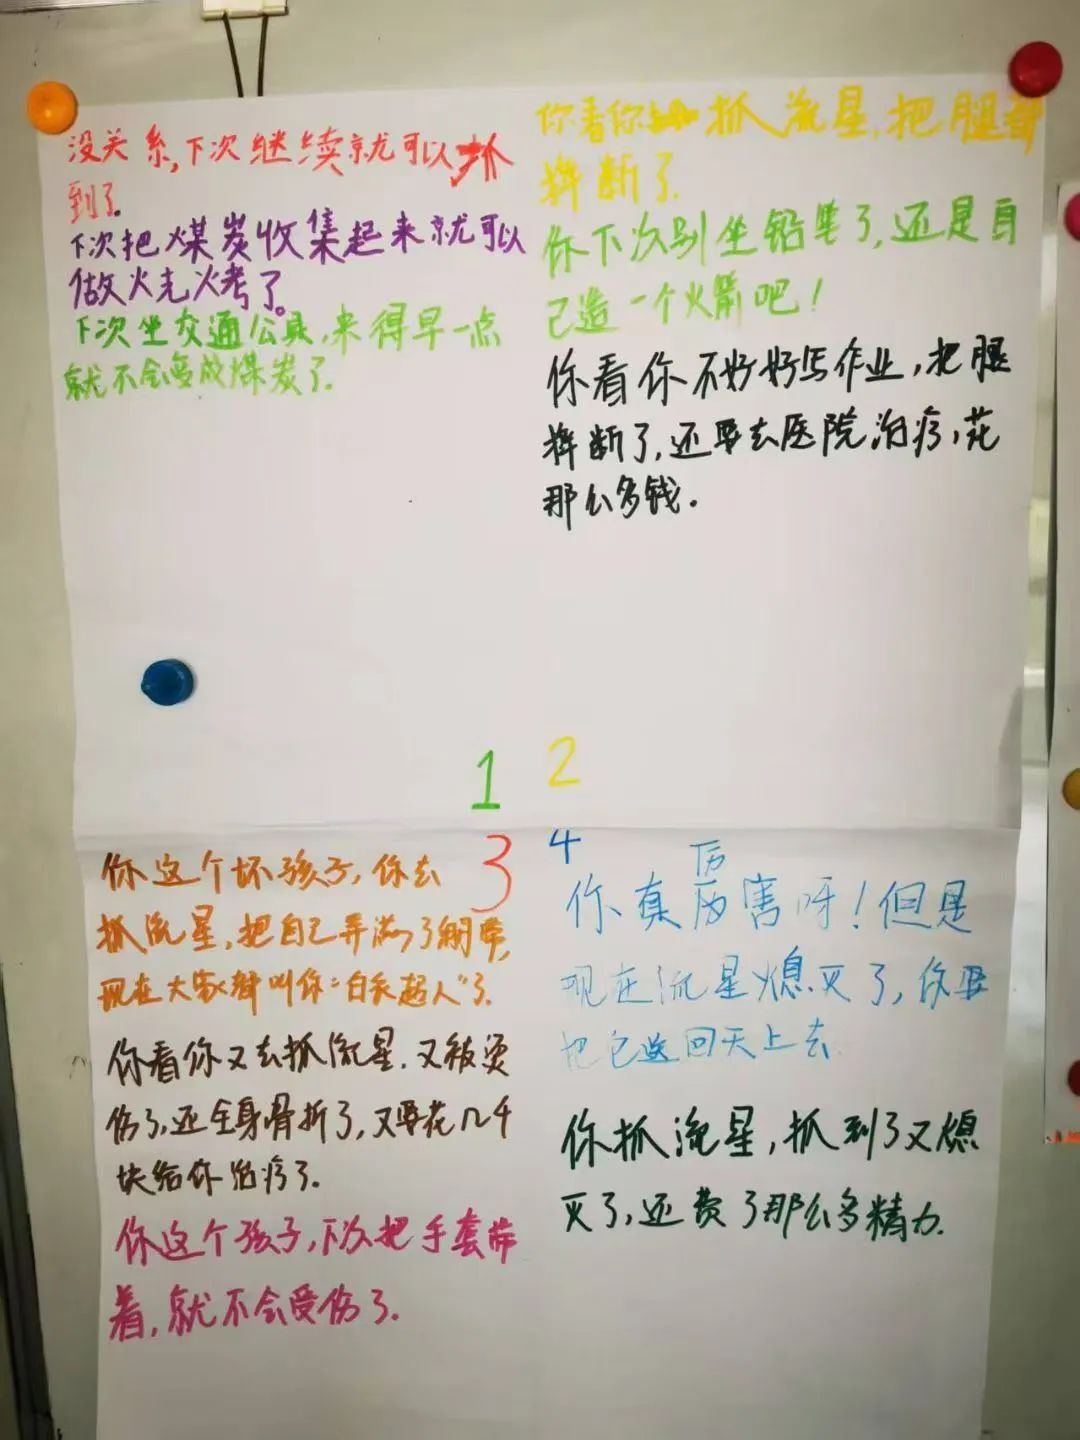 没关系,下次继续就可以抓
到了.
下次把煤炭收集起来就可以
做火烤了。
下次坐交通公具,来得早一点
就不会变成煤炭了.
1
你看你抓流星,把腿都
摔断了.
你下次别坐铅笔了,还是自
己造一个火箭吧!
你看你不好好写作业,把腿
摔断了,还要去医院治疗,花
那么多钱.
2
3
你这个坏孩子,你去
抓流星,把自己弄满了绷带,
现在大家都叫你“白衣超人”了.
你看你又去抓流星.又被烫
伤了,还全身骨折了,又要花几千
块给你治疗了.
你这个孩子,下次把手套带
着,就不会受伤了.
4
厉
你真厉害呀!但是
现在流星熄灭了,你要
把它送回天上去.
你抓流星,抓到了又熄
灭了,还费了那么多精力.